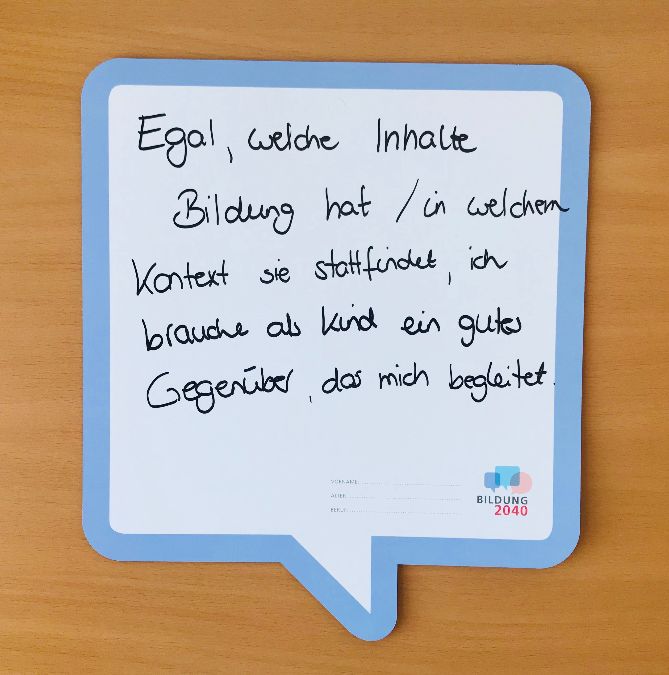 Egal, welche Inhalte
Bildung hat / in welchem
Kontext sie stattfindet, ich
brauche als Kind ein gutes
Gegenüber, das mich begleitet.
VORNAME:
ALTER:
BERUF:
BILDUNG
2040